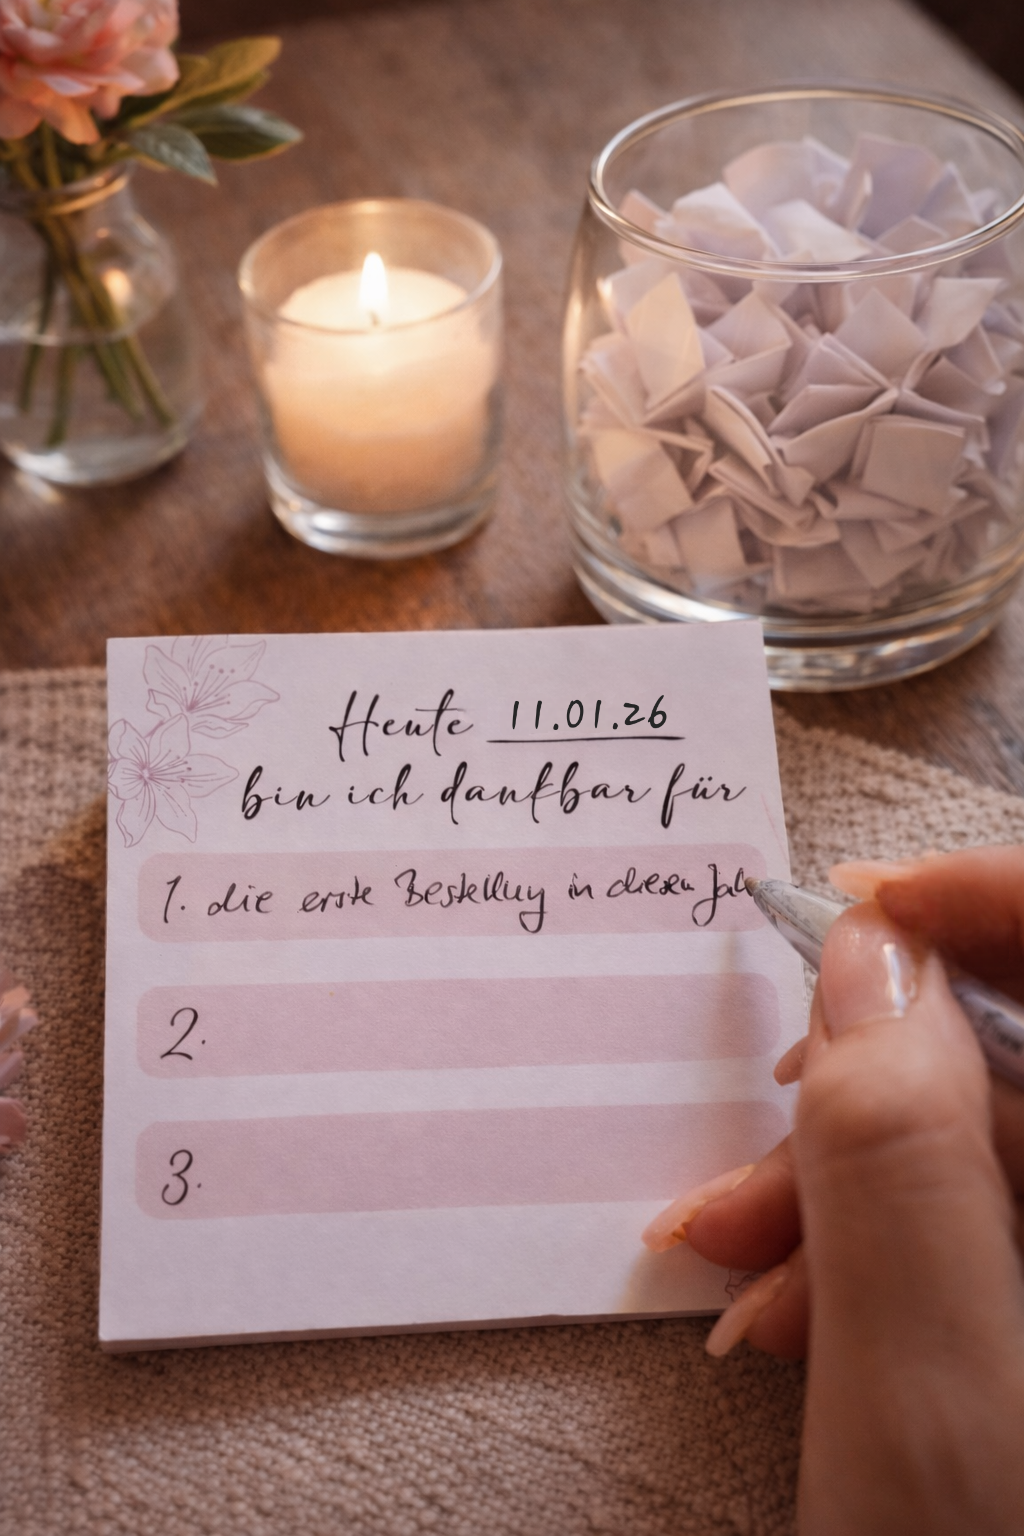 Heute 11.01.26
bin ich dankbar für
1. die erste Bestellung in diesem Jah
2.
3.